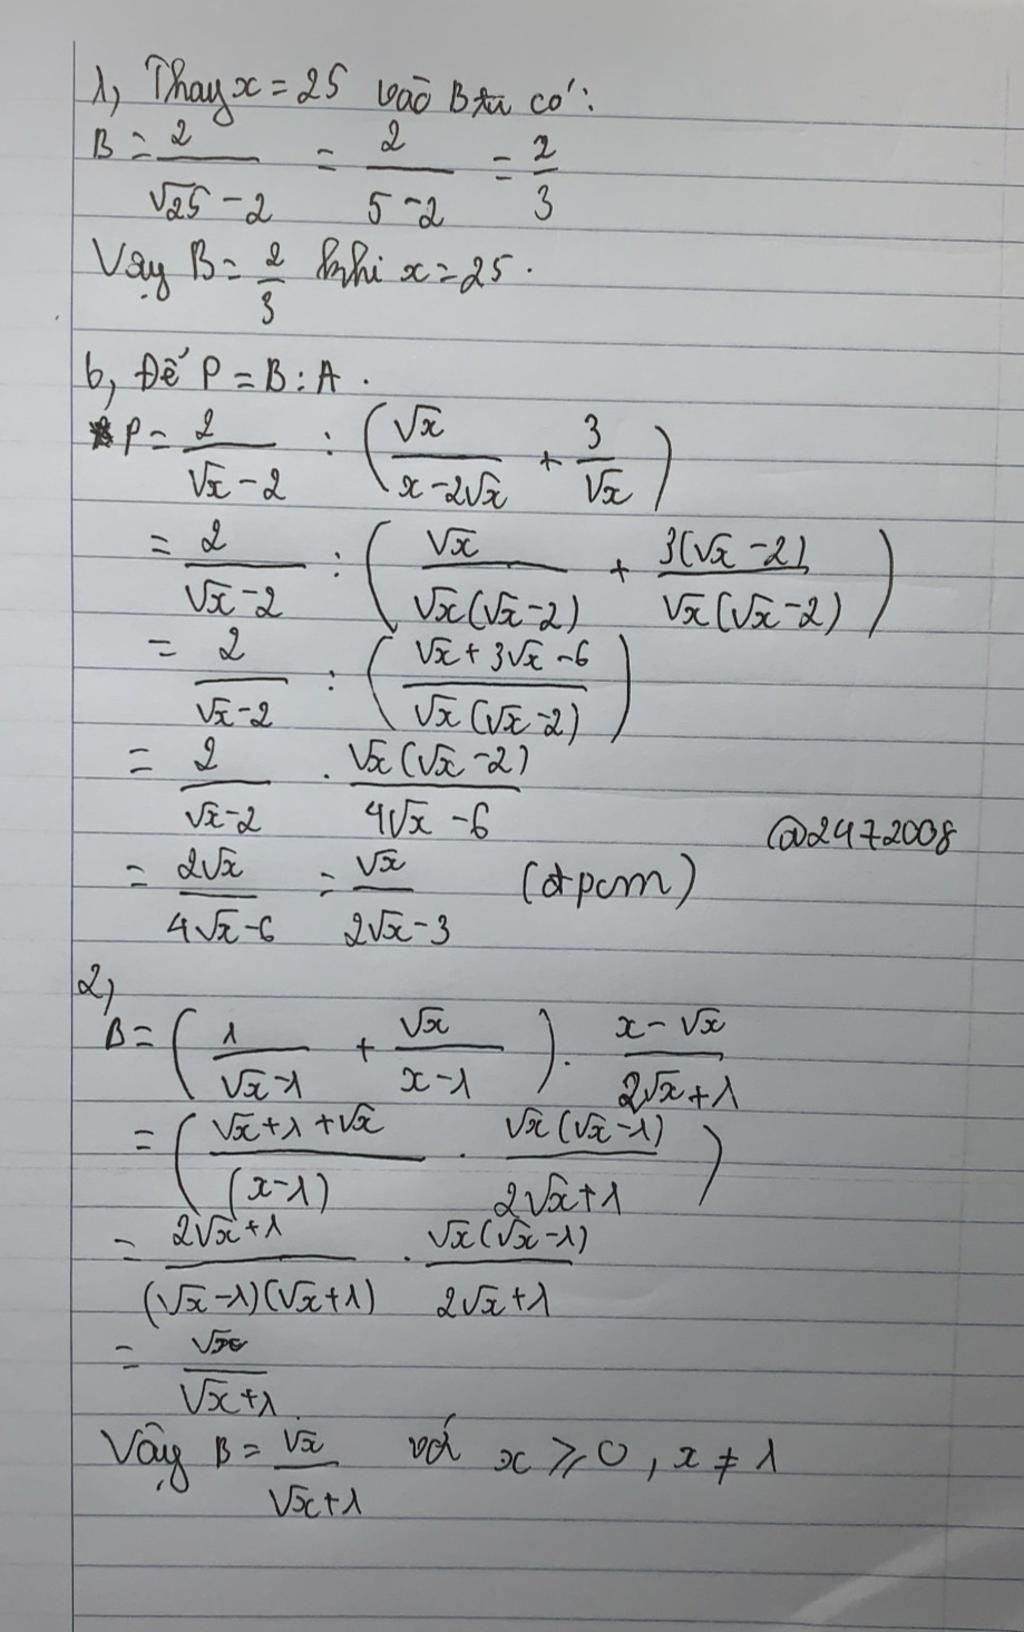 1, Thay x = 25 vào B ta có:
B = 2/(√25 - 2) = 2/(5 - 2) = 2/3
Vậy B = 2/3 khi x = 25.
b, Để P = B : A.
P = 2/(√x - 2) : (√x/(x - 2√x) + 3/√x)
= 2/(√x - 2) : (√x/(√x(√x - 2)) + 3(√x - 2)/(√x(√x - 2)))
= 2/(√x - 2) : ((√x + 3√x - 6)/(√x(√x - 2)))
= 2/(√x - 2) . √x(√x - 2)/(4√x - 6)
@2472008
= 2√x/(4√x - 6) = √x/(2√x - 3) (đpcm)
2,
B = (1/(√x - 1) + √x/(x - 1)) . (x - √x)/(2√x + 1)
= ((√x + 1 + √x)/(x - 1) . √x(√x - 1)/(2√x + 1))
= (2√x + 1)/((√x - 1)(√x + 1)) . √x(√x - 1)/(2√x + 1)
= √x/(√x + 1)
Vậy B = √x/(√x + 1) với x ⩾ 0, x ≠ 1